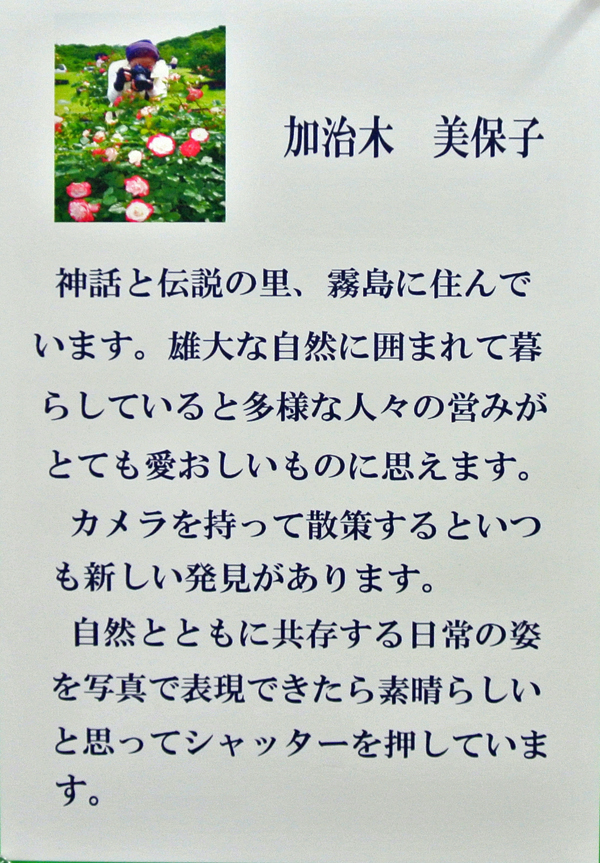 加治木　美保子
神話と伝説の里、霧島に住んで
います。雄大な自然に囲まれて暮
らしていると多様な人々の営みが
とても愛おしいものに思えます。
カメラを持って散策するといつ
も新しい発見があります。
自然とともに共存する日常の姿
を写真で表現できたら素晴らしい
と思ってシャッターを押していま
す。